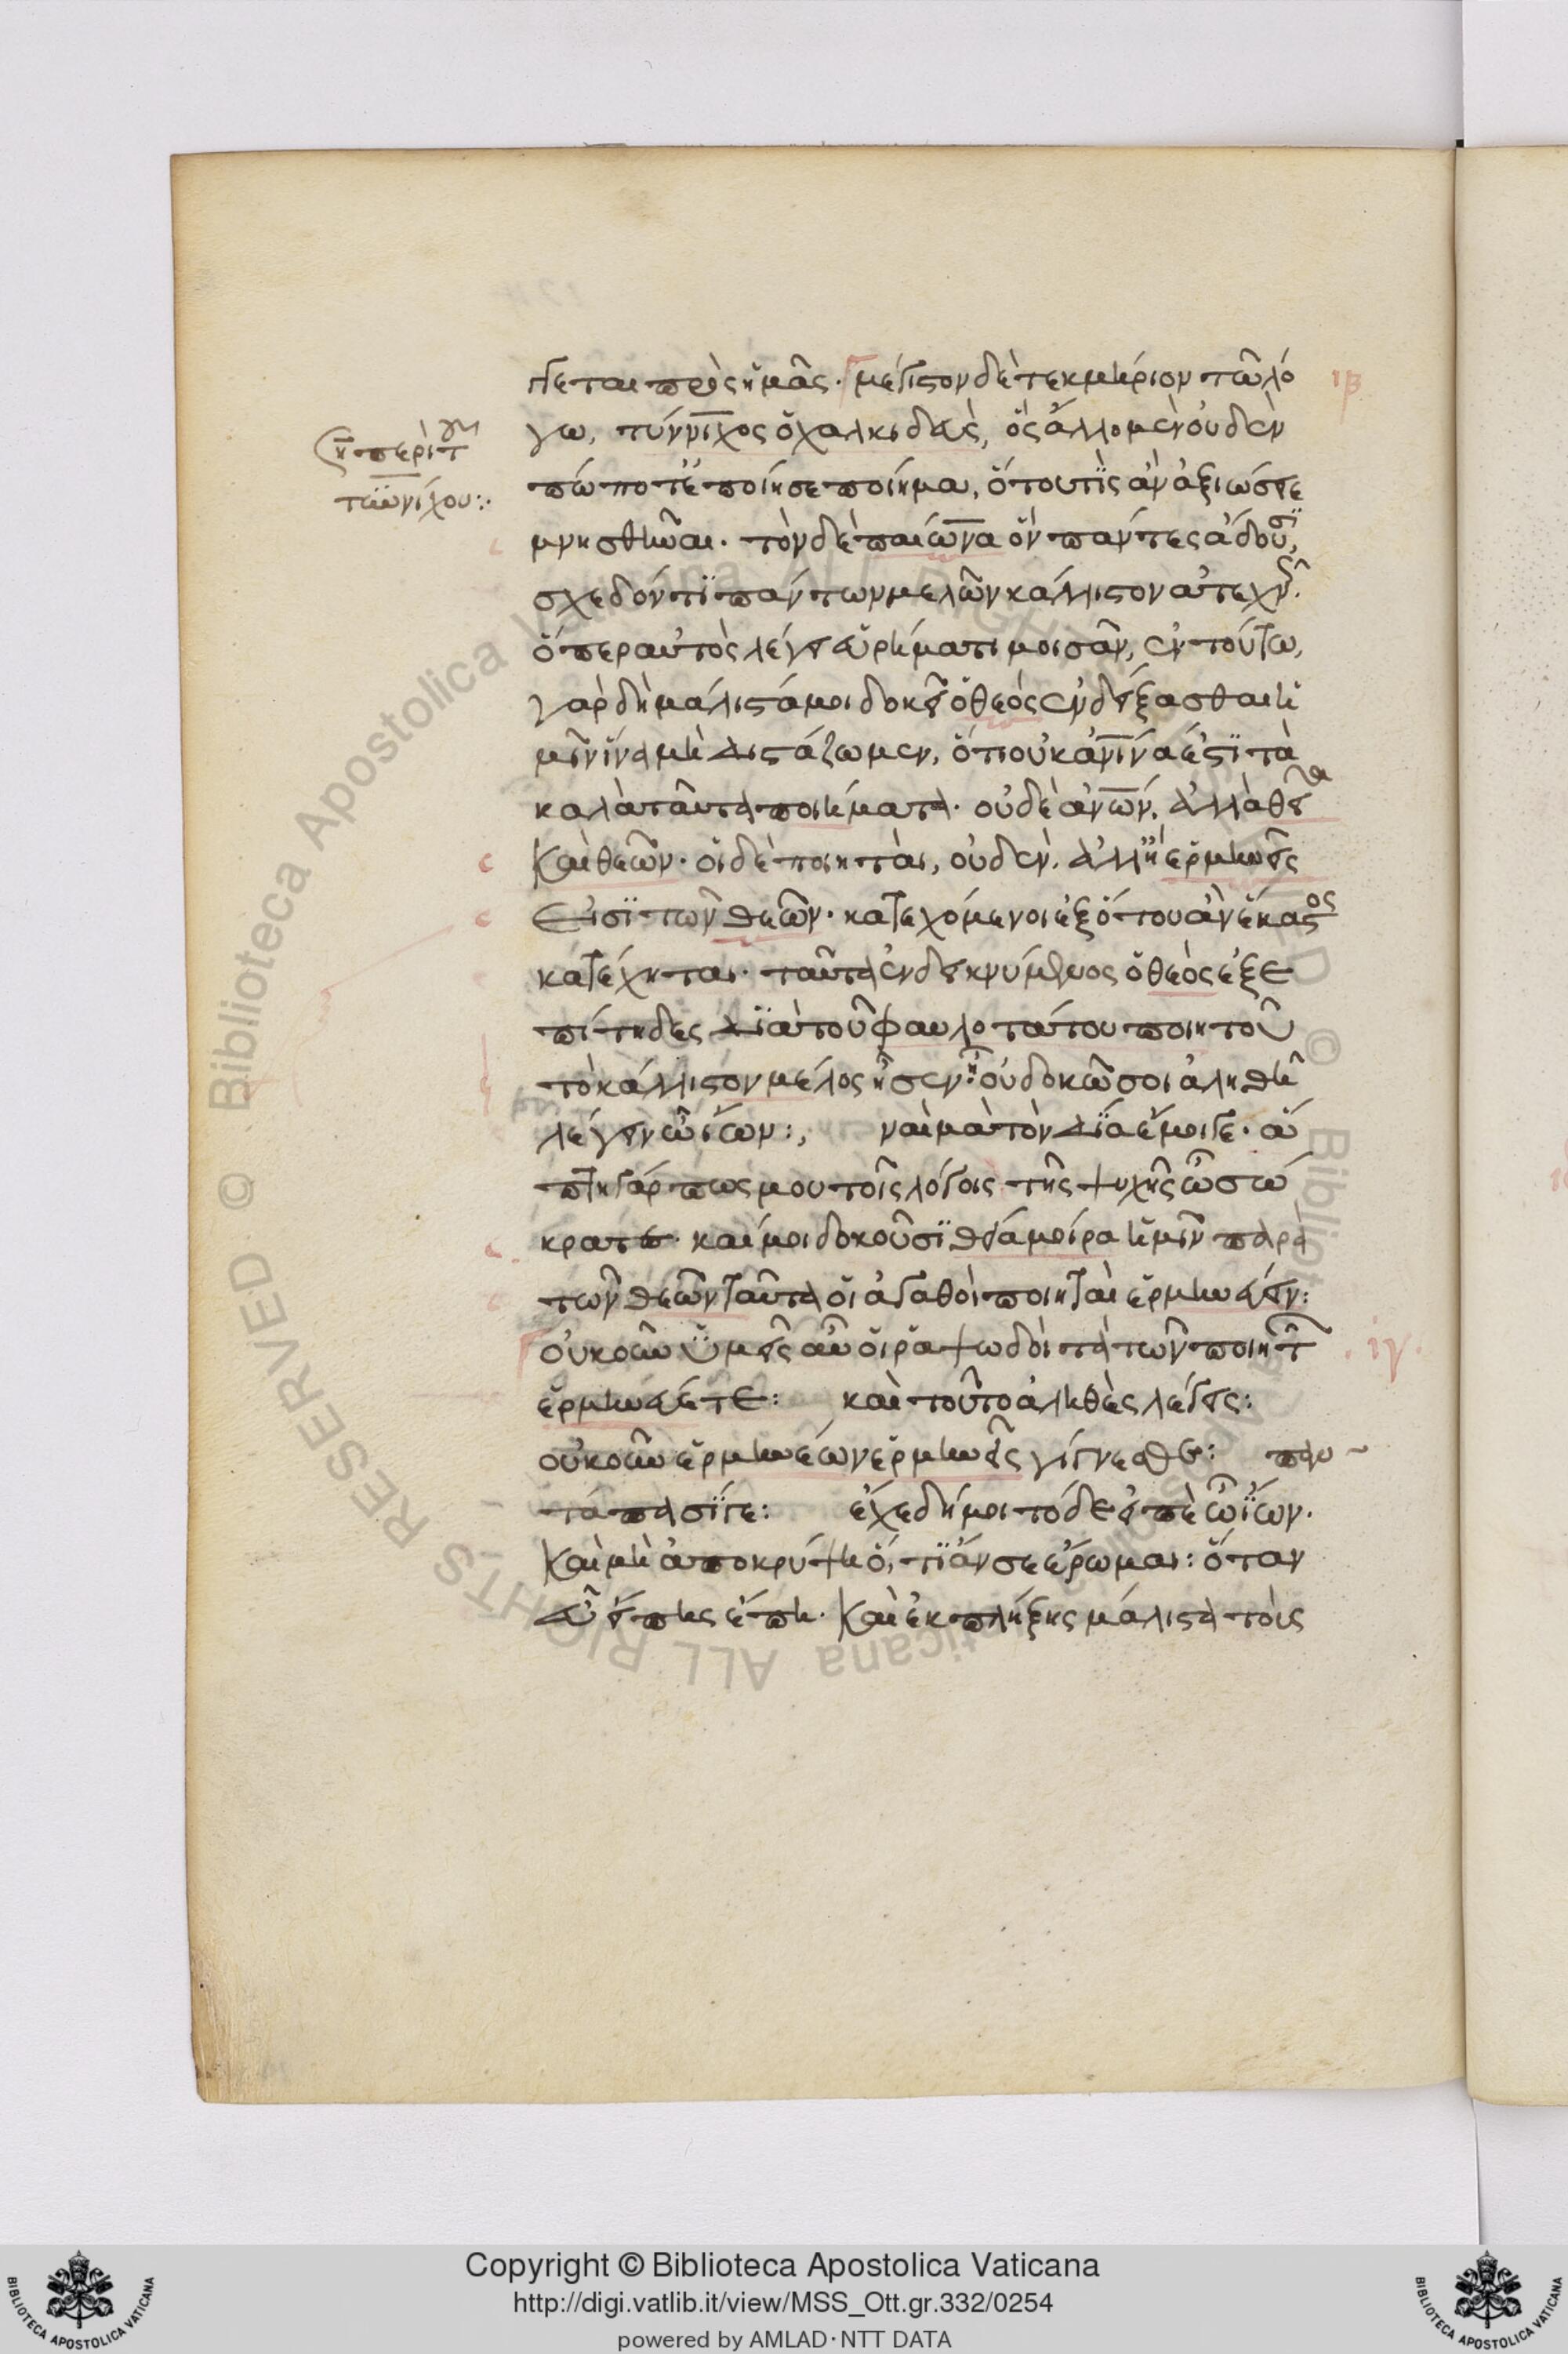 γγεται πρὸς ἡμᾶς· μέγιστον δὲ τεκμήριον τῶ λό ιβ
γω, τύννιχος ὁ χαλκιδεὺς, ὃς ἄλλο μὲν οὐδὲν
πώποτε ἐποίησε ποίημα, ὅτου τὶς ἂν ἀξιώσειε
μνησθῆναι· τὸν δὲ παιώνα ὃν πάντες ἄδουσι,
σχεδόν τι πάντων μελῶν κάλλιστον ἀτεχν
ὅπερ αὐτὸς λέγει εὕρημά τι μοισᾶν, ἐν τούτω,
γὰρ δὴ μάλιστά μοι δοκεῖ ὁ θεὸς ἐνδείξασθαι ἡ
μῖν ἵνα μὴ διστάζωμεν, ὅτι οὐκ ἀνινά ἐστι τὰ
καλὰ ταῦτα ποιήματα· οὐδὲ ἀνων, ἀλλὰ θεῖα
καὶ θεῶν· οἱ δὲ ποιηταὶ, οὐδὲν, ἀλλ' ἢ ἑρμηνεῖς
εἰσὶ τῶν θεῶν· κατεχόμενοι ἐξ ὅτου ἂν ἕκαστος
κατέχηται· ταῦτα ἐνδεικνύμενος ὁ θεὸς ἐξε
πίτηδες διὰ τοῦ φαυλοτάτου ποιητοῦ
τὸ κάλλιστον μέλος ἦσεν: ἢ οὐ δοκῶ σοι ἀληθῆ
λέγειν ὦ ἴων:, ναὶ μὰ τὸν δία ἔμοιγε· ἅ
πτη γάρ πως μου τοῖς λόγοις τῆς ψυχῆς ὦ σώ
κρατες· καί μοι δοκοῦσι θεία μοίρα ἡμῖν παρὰ
τῶν θεῶν ταῦτα οἱ ἀγαθοὶ ποιηταὶ ἑρμηνεύειν:
οὐκοῦν ὑμεῖς αὖ οἱ ῥαψωδοὶ τὰ τῶν ποιητ ιγ
ἑρμηνεύετε: καὶ τοῦτο ἀληθὲς λέγεις:
οὐκοῦν ἑρμηνέων ἑρμηνεῖς γίγνεσθε: παν
τάπασί γε: ἔχε δή μοι τόδε εἰπὲ ὦ ἴων.
καὶ μὴ ἀποκρύψη ὅ, τι ἄν σε ἔρωμαι: ὅταν
εὖ εἴπης ἔπη· καὶ ἐκπλήξης μάλιστα τοὺς
περὶ τ
τυννίχου:·
Copyright © Biblioteca Apostolica Vaticana
http://digi.vatlib.it/view/MSS_Ott.gr.332/0254
powered by AMLAD·NTT DATA